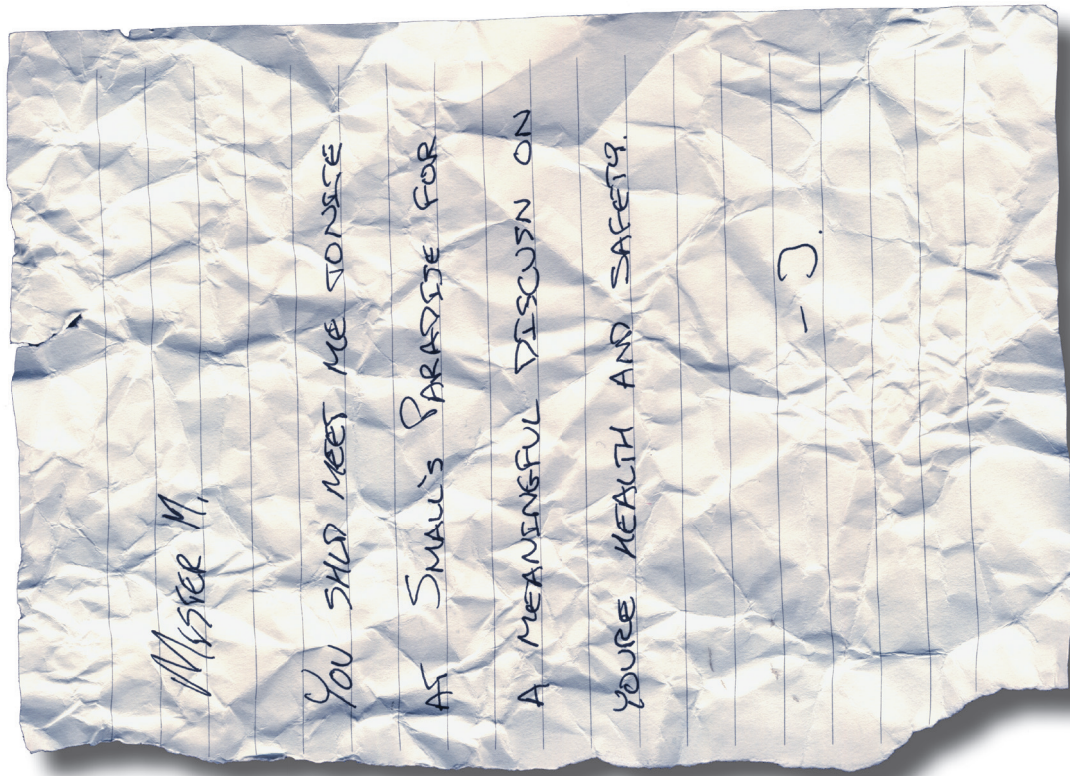 MISTER M,
YOU SHLD MEET ME TONITE
AT SMALL'S PARADISE FOR
A MEANINGFUL DISCUSN ON
YOURE HEALTH AND SAFETY.
– J.